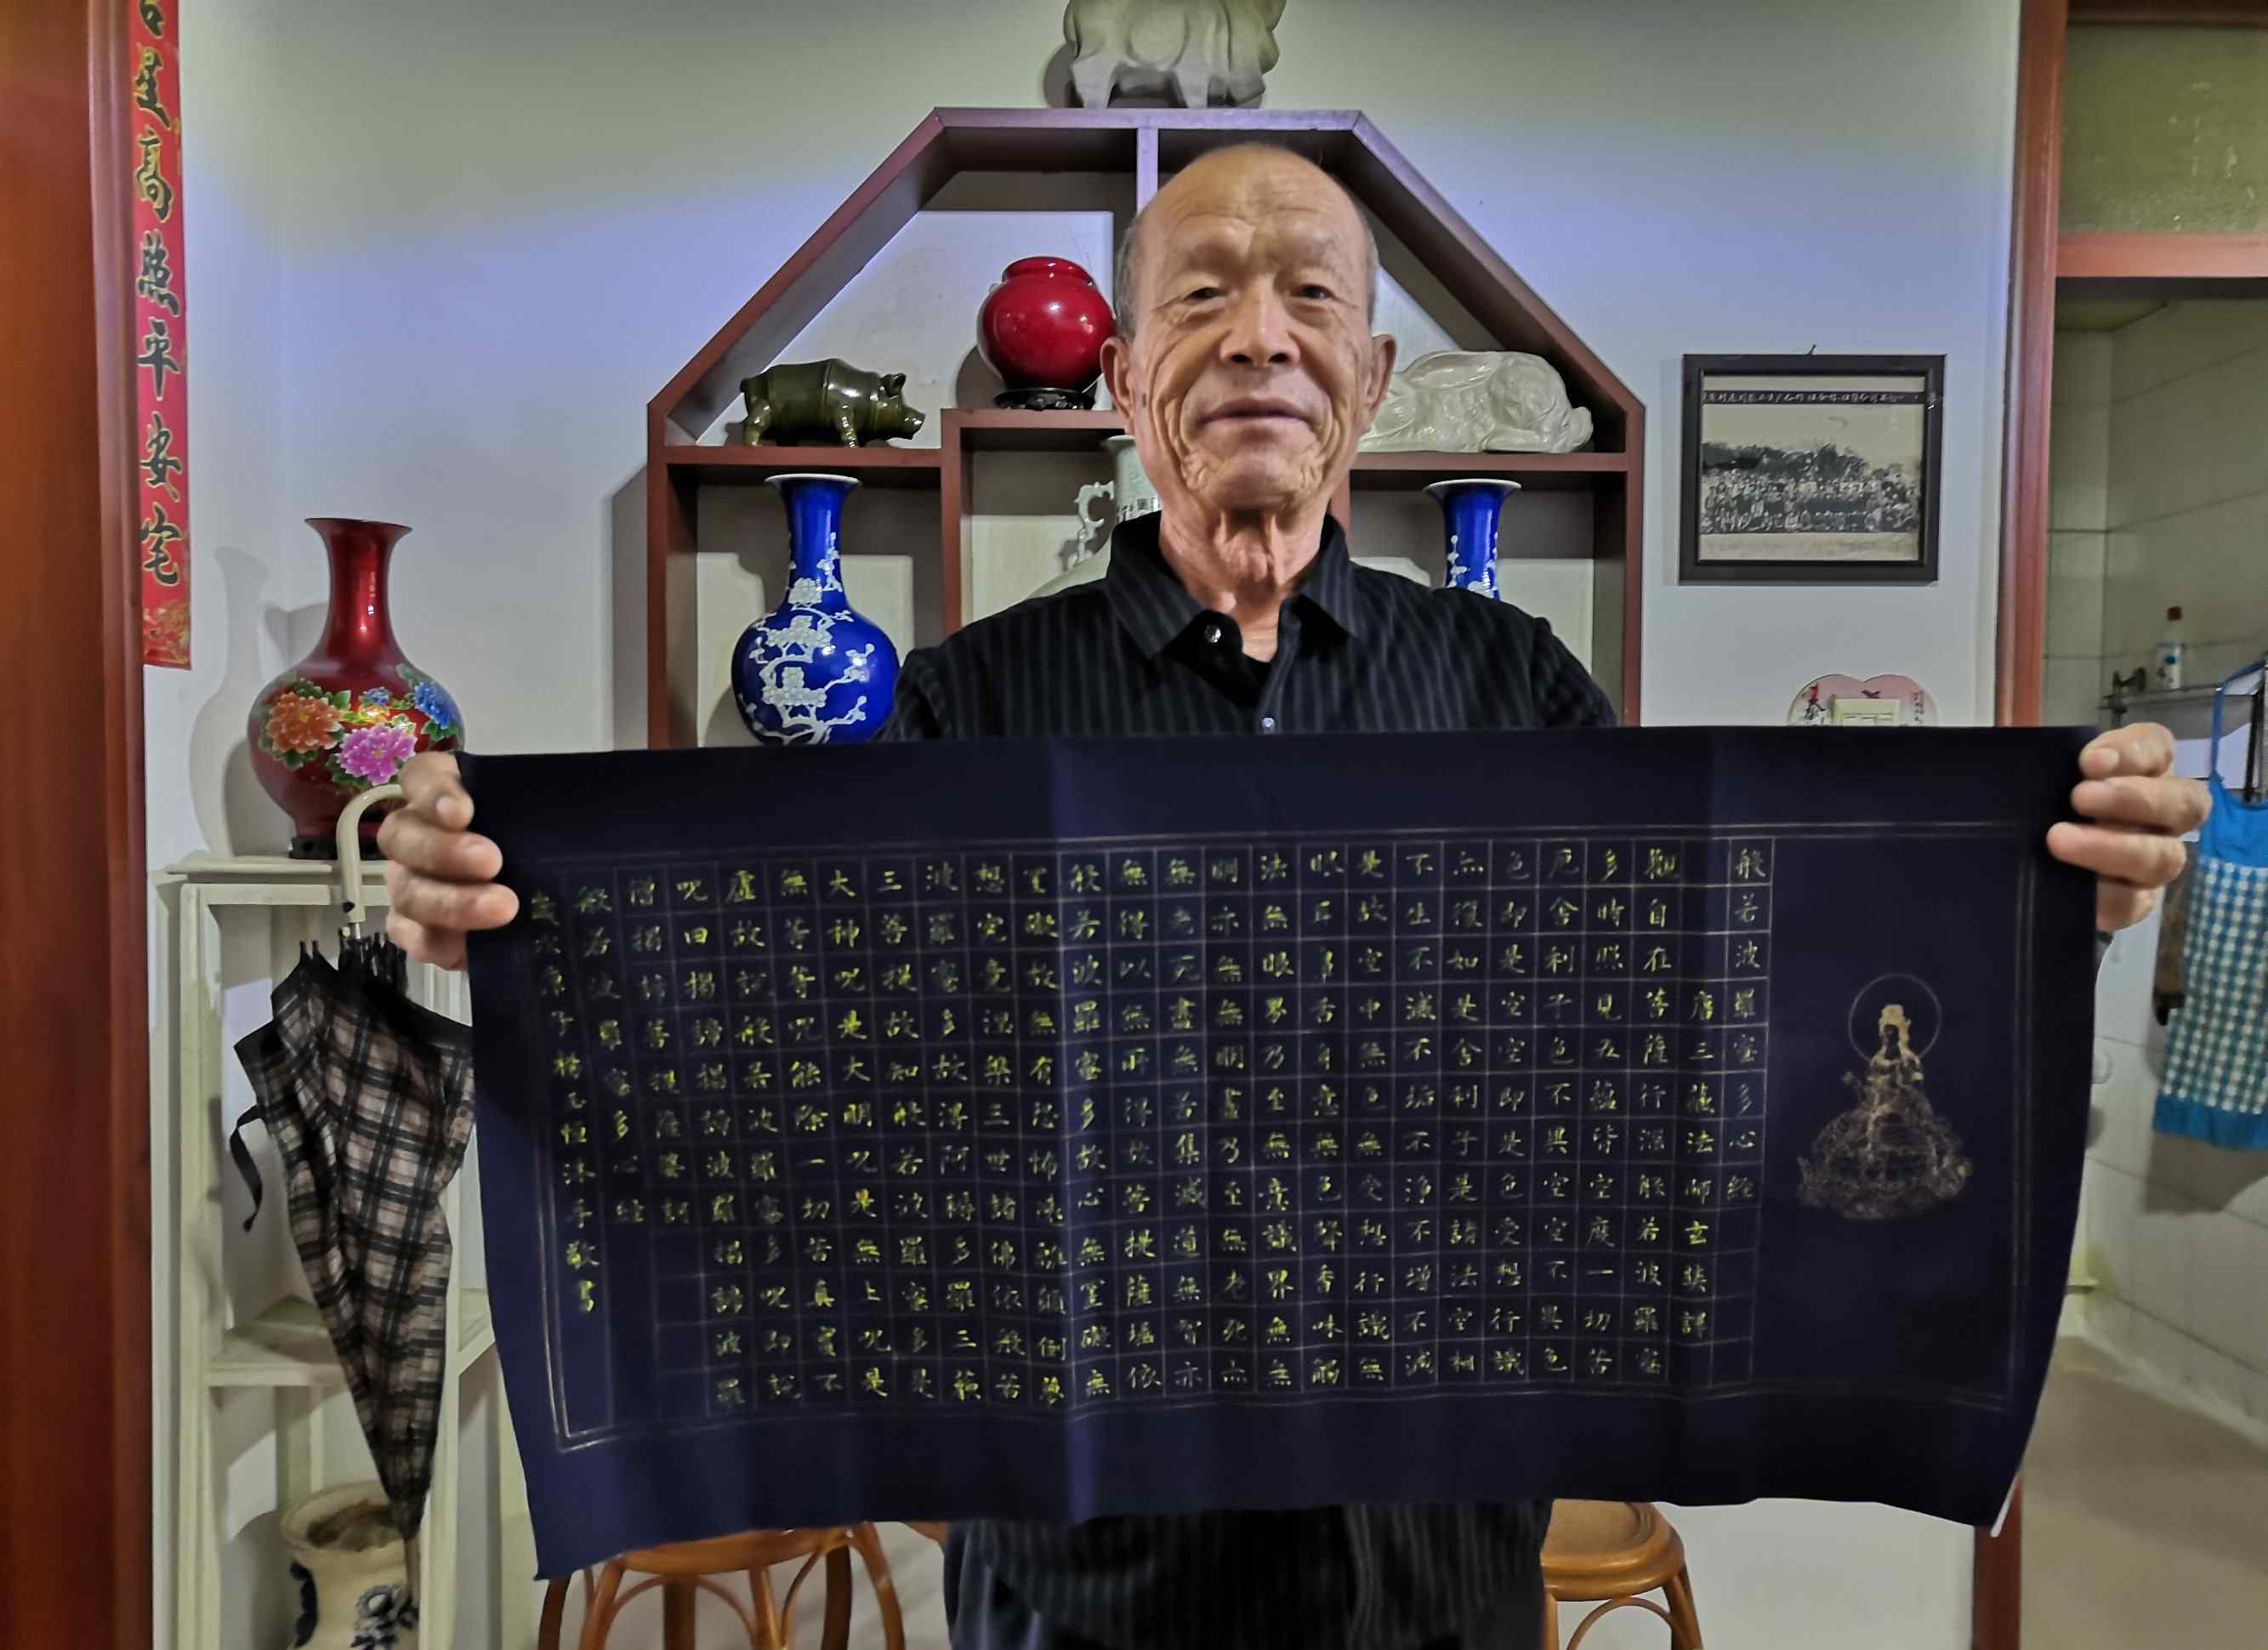 吉星高照平安宅
般若波羅蜜多心經
唐三藏法師玄奘譯
觀自在菩薩行深般若波羅蜜
多時照見五蘊皆空度一切苦
厄舍利子色不異空空不異色
色即是空空即是色受想行識
亦復如是舍利子是諸法空相
不生不滅不垢不淨不增不減
是故空中無色無受想行識無
眼耳鼻舌身意無色聲香味觸
法無眼界乃至無意識界無無
明亦無無明盡乃至無老死亦
無老死盡無苦集滅道無智亦
無得以無所得故菩提薩埵依
般若波羅蜜多故心無罣礙無
罣礙故無有恐怖遠離顛倒夢
想究竟涅槃三世諸佛依般若
波羅蜜多故得阿耨多羅三藐
三菩提故知般若波羅蜜多是
大神呪是大明呪是無上呪是
無等等呪能除一切苦真實不
虛故說般若波羅蜜多呪即說
呪曰揭諦揭諦波羅揭諦波羅
僧揭諦菩提薩婆訶
般若波羅蜜多心經
歲次庚子楊恒沐手敬書